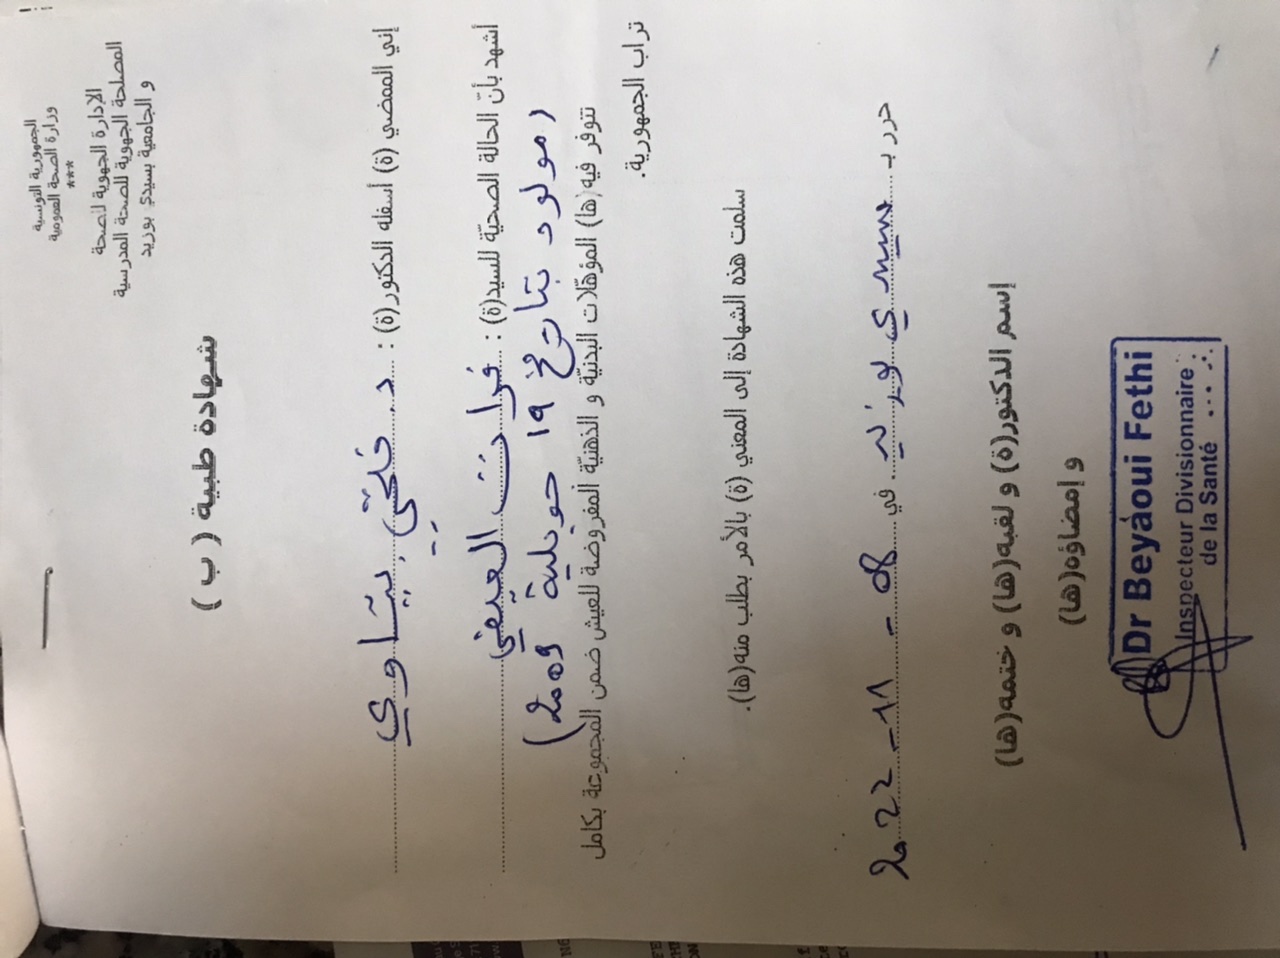 الجمهورية التونسية
وزارة الصحة العمومية
***
الإدارة الجهوية للصحة
المصلحة الجهوية للصحة المدرسية
و الجامعية بسيدي بوزيد
شهادة طبية ( ب )
إني الممضي (ة) أسفله الدكتور(ة) : د. فتحي بياوي
أشهد بأنّ الحالة الصحيّة للسيد(ة) : فرات العيفي
(مولود بتاريخ 19 جويلية 2009)
تتوفر فيه(ها) المؤهّلات البدنيّة و الذهنيّة المفروضة للعيش ضمن المجموعة بكامل
تراب الجمهورية.
سلمت هذه الشهادة إلى المعني (ة) بالأمر بطلب منه(ها).
حرر بـ سيدي بوزيد في 08 - 11 - 2022
إسم الدكتور(ة) و لقبه(ها) و ختمه(ها)
و إمضاؤه(ها)
Dr Beyaoui Fethi
Inspecteur Divisionnaire
de la Santé